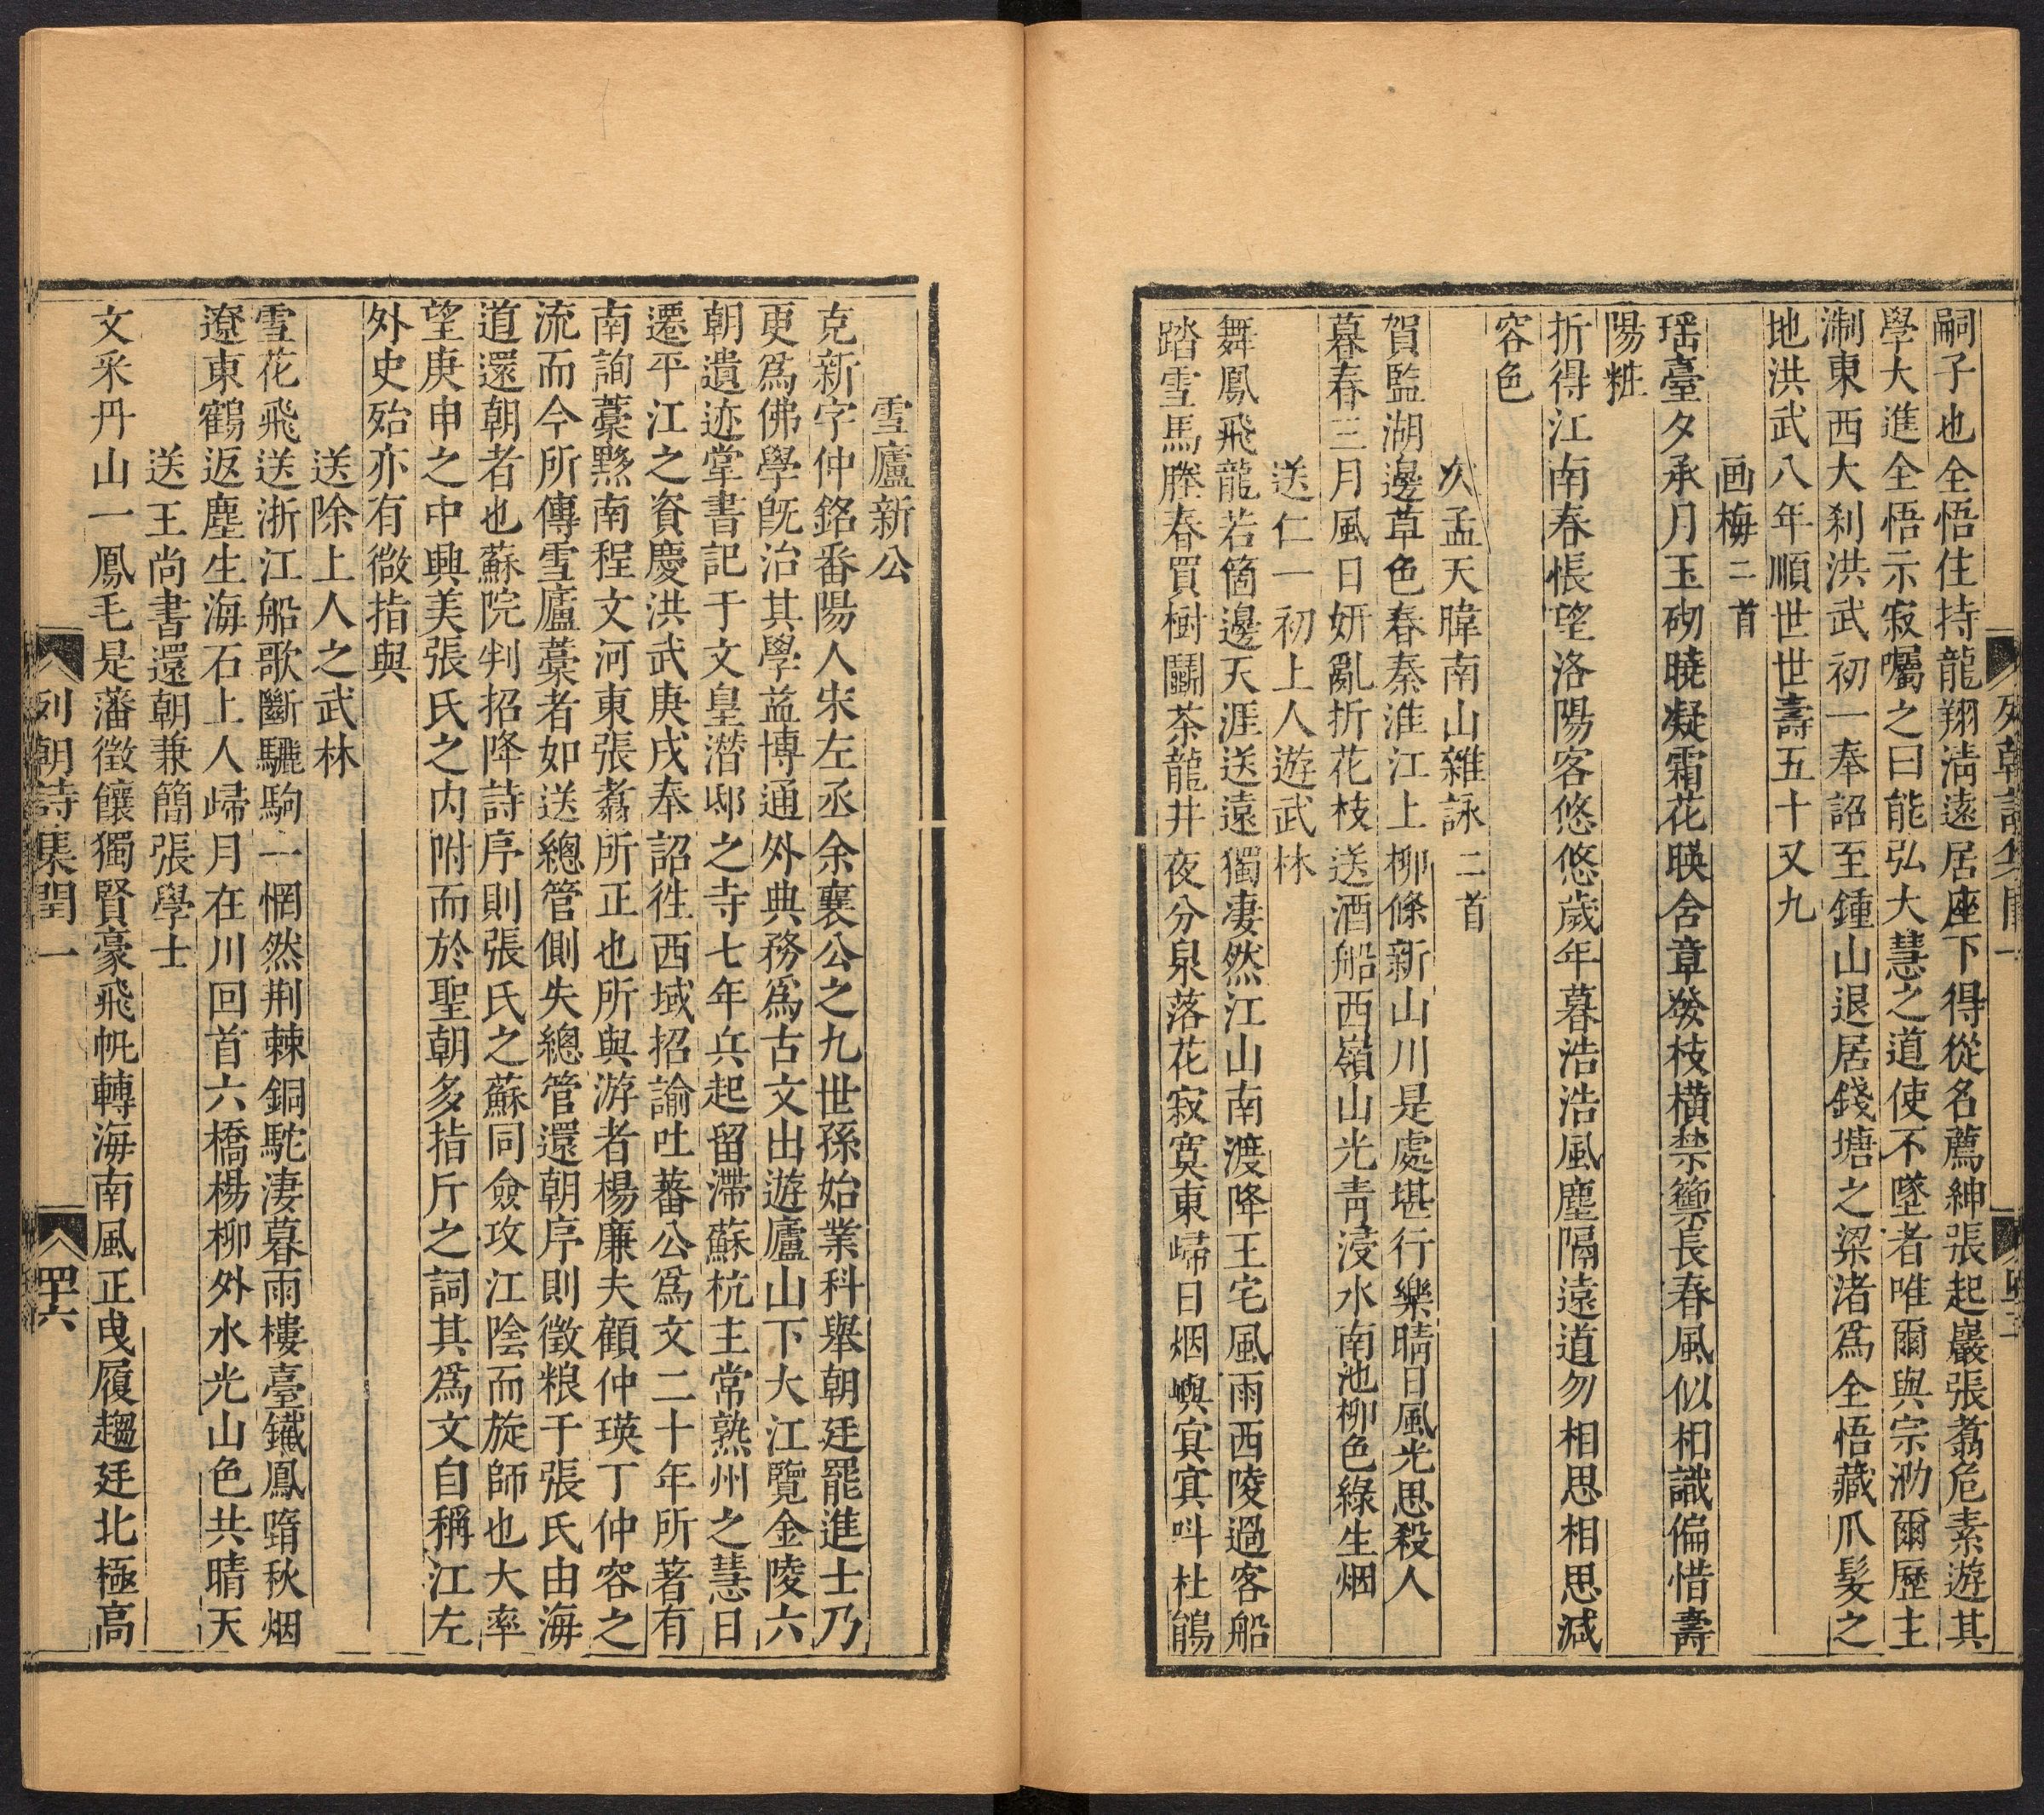 列朝詩集閏一
嗣子也全悟住持龍翔淸遠居座下得從名薦紳張起巖張翥危素遊其
學大進全悟示寂囑之曰能弘大慧之道使不墜者唯爾與宗泐爾歷主
淛東西大刹洪武初一奉詔至鍾山退居錢塘之梁渚爲全悟藏爪髮之
地洪武八年順世世壽五十又九
画梅二首
瑶臺夕承月玉砌曉凝霜花暎含章發枝橫禁籞長春風似相識偏惜壽
陽粧
折得江南春悵望洛陽客悠悠歲年暮浩浩風塵隔遠道勿相思相思減
容色
次孟天暐南山雜詠二首
賀監湖邊草色春秦淮江上柳條新山川是處堪行樂晴日風光思殺人
暮春三月風日妍亂折花枝送酒船西嶺山光靑浸水南池柳色綠生烟
送仁一初上人遊武林
舞鳳飛龍若箇邊天涯送遠獨凄然江山南渡降王宅風雨西陵過客船
踏雪馬塍春買樹鬭茶龍井夜分泉落花寂寞東歸日烟嶼冥冥叫杜鵑
雪廬新公
克新字仲銘番陽人宋左丞余襄公之九世孫始業科舉朝廷罷進士乃
更爲佛學旣治其學益博通外典務爲古文出遊廬山下大江覽金陵六
朝遺迹掌書記于文皇潜邸之寺七年兵起留滯蘇杭主常熟州之慧日
遷平江之資慶洪武庚戌奉詔徃西域招諭吐蕃公爲文二十年所著有
南詢藁黟南程文河東張翥所正也所與游者楊廉夫顧仲瑛丁仲容之
流而今所傳雪廬藁者如送總管側失總管還朝序則徵粮于張氏由海
道還朝者也蘇院判招降詩序則張氏之蘇同僉攻江陰而旋師也大率
望庚申之中興美張氏之内附而於聖朝多指斤之詞其爲文自稱江左
外史殆亦有微指與
送除上人之武林
雪花飛送浙江船歌斷驪駒一惘然荆棘銅駝淒暮雨樓臺鐵鳳墮秋烟
遼東鶴返塵生海石上人歸月在川回首六橋楊柳外水光山色共晴天
送王尚書還朝兼簡張學士
文采丹山一鳳毛是藩徵饟獨賢豪飛帆轉海南風正曳履趨廷北極高
列朝詩集閏一
四十六